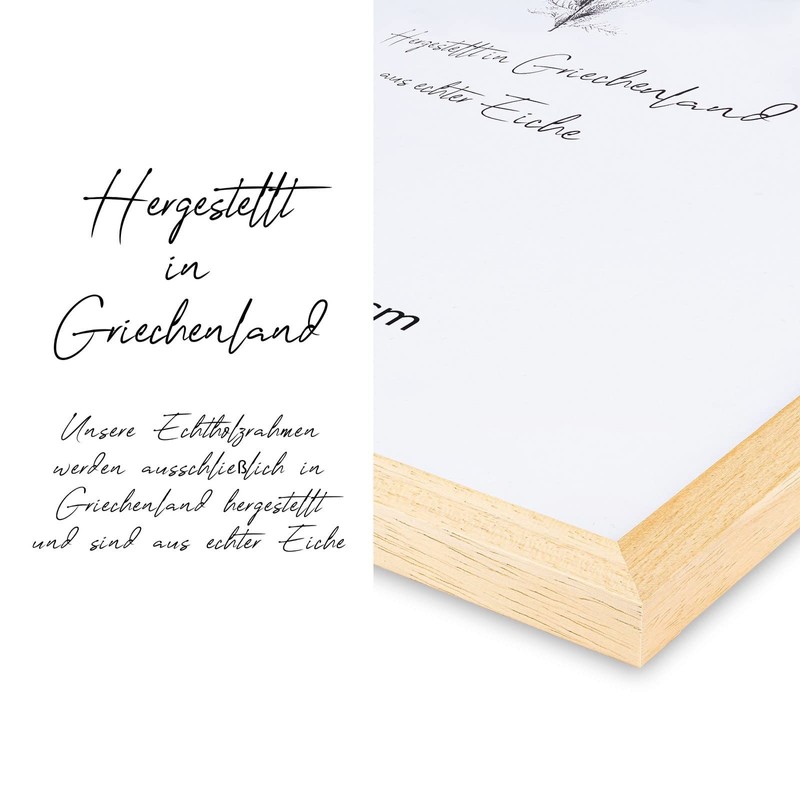 Hergestellt
in
Griechenland
Unsere Echtholzrahmen
werden ausschließlich in
Griechenland hergestellt
und sind aus echter Eiche
Hergestellt in Griechenland
aus echter Eiche
cm